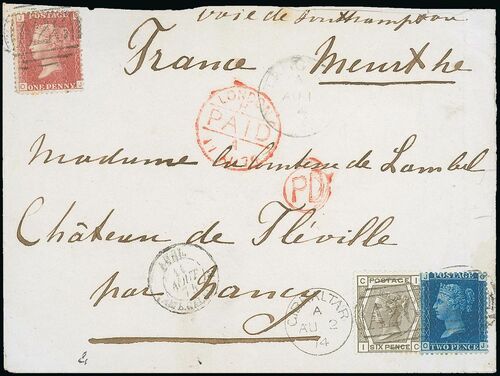 voie de Southampton
France Meurthe
LONDON
PAID
PD
Madame la Comtesse de Lambel
Château de Fléville
par Nancy
GIBRALTAR
A
AU 2
74
ONE PENNY
POSTAGE
SIX PENCE
POSTAGE
TWO PENCE